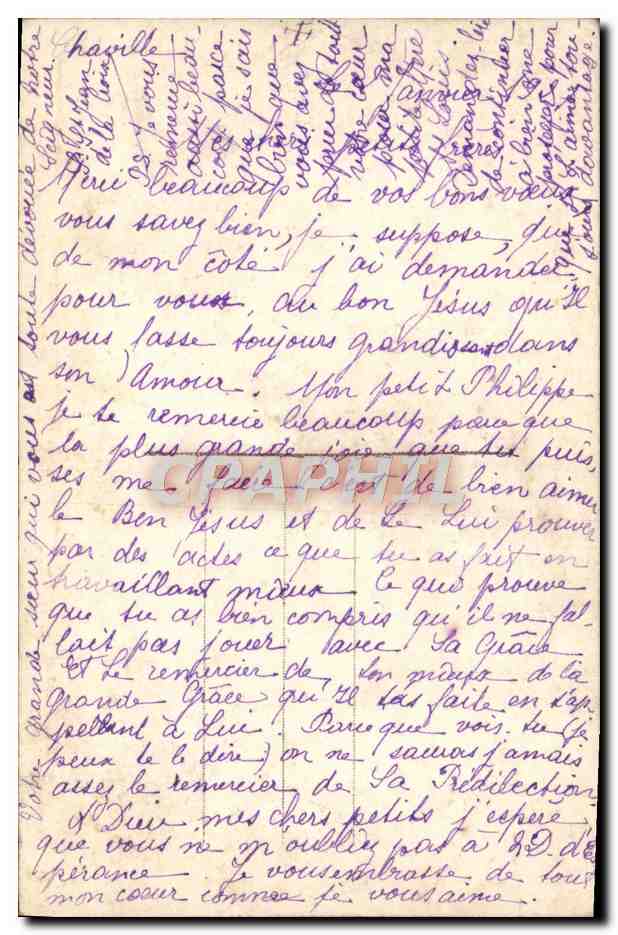 Chaville
Mes chers petits frères
Merci beaucoup de vos bons vœux
vous savez bien, je suppose, que
de mon côté j'ai demandé
pour vous, au bon Jésus qu'Il
vous fasse toujours grandir dans
son Amour. Mon petit Philippe
je te remercie beaucoup parce que
la plus grande joie que tu puis,
ses me faire c'est de bien aimer
le Bon Jésus et de Le Lui prouver
par des actes ce que tu as fait en
travaillant mieux. Ce qui prouve
que tu as bien compris qu'il ne fal-
lait pas jouer avec Sa Grâce
Et Le remercier de ton mieux de la
grande Grâce qu'Il t'as faite en t'ap-
pellant à Lui. Parce que vois-tu (je
peux te le dire) on ne sauras jamais
assez le remercier de Sa Prédilection.
A Dieu mes chers petits j'espère
que vous ne m'oubliez pas à N.D. d'Es
pérance. Je vous embrasse de tout
mon cœur comme je vous aime.
Votre grande sœur qui vous est toute dévouée de Notre
Seigneur
de la Croix
Je vous
remercie
aussi beau-
coup parce
que je sais
bien que
vous avez
prié de tout
votre cœur
pour ma
amour
demandez-lui
de continuer
à bien me
posséder pour
que je L'aime tou-
jours davantage.
CPAPHIL